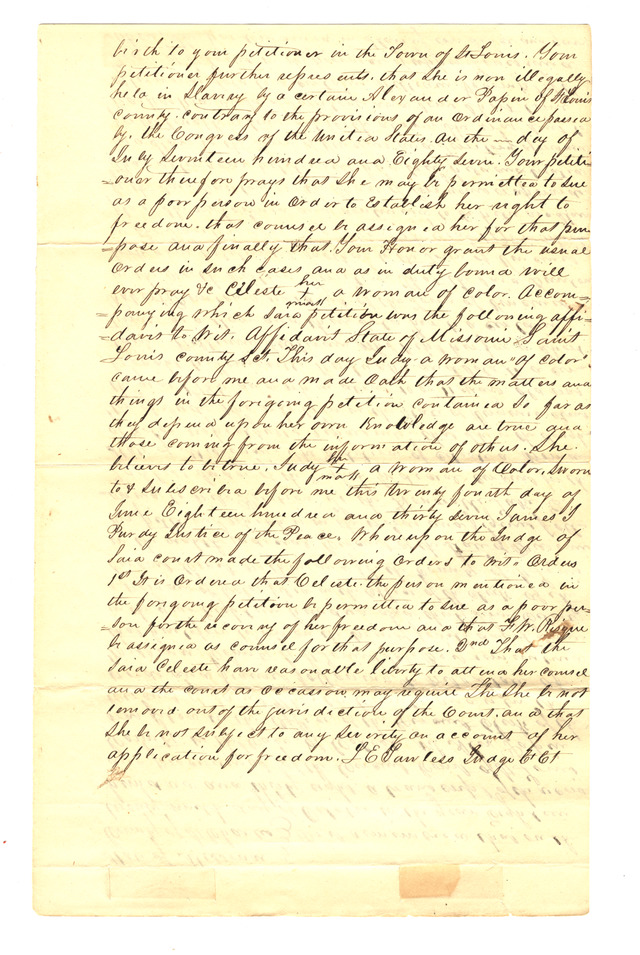 birth to your petitioner in the Town of St Louis. Your
petitioner further represents. that she is now illegally
held in Slavery by a certain Alexander Papin of St Louis
county. contrary to the provisions of an Ordinance passed
by. the Congress of the United States. on the — day of
July Seventeen hundred and Eighty Seven. Your petiti-
=oner therefore prays that She may be permitted to Sue
as a poor person in Order to Establish her right to
freedom. that counsel be assigned her for that pur-
pose and finally that. Your Honor grant the usual
Orders in such cases and as in duty bound will
ever pray &c Celeste her + mark a woman of color. Accom-
=panying which said petition was the following affi-
=davit to Wit. Affidavit State of Missouri Saint
Louis county Sct. This day Judy a woman "of Color"
came before me and made Oath that the matters and
things in the foregoing petition contained So far as
they depend upon her own Knowledge are true and
those coming from the information of others. She.
believes to be true. Judy her + mark a woman of Color. Sworn
to & Subscribed before me this twenty fourth day of
June Eighteen hundred and thirty Seven James S
Purdy Justice of the Peace. Whereupon the Judge of
Said court made the following Orders to Wit. Orders
1st It is Ordered that Celeste. the person mentioned in
the foregoing petition be permitted to sue as a poor per-
=son for the recovery of her freedom and that F. W. Risque
be assigned as counsel for that purpose. 2nd That the
said Celeste have reasonable liberty to attend her counsel
and the court as occassion may require The She be not
removed out of the jurisdiction of the Court. and that
She be not subject to any severity on account of her
application for freedom. L E Lawless Judge &c Ct